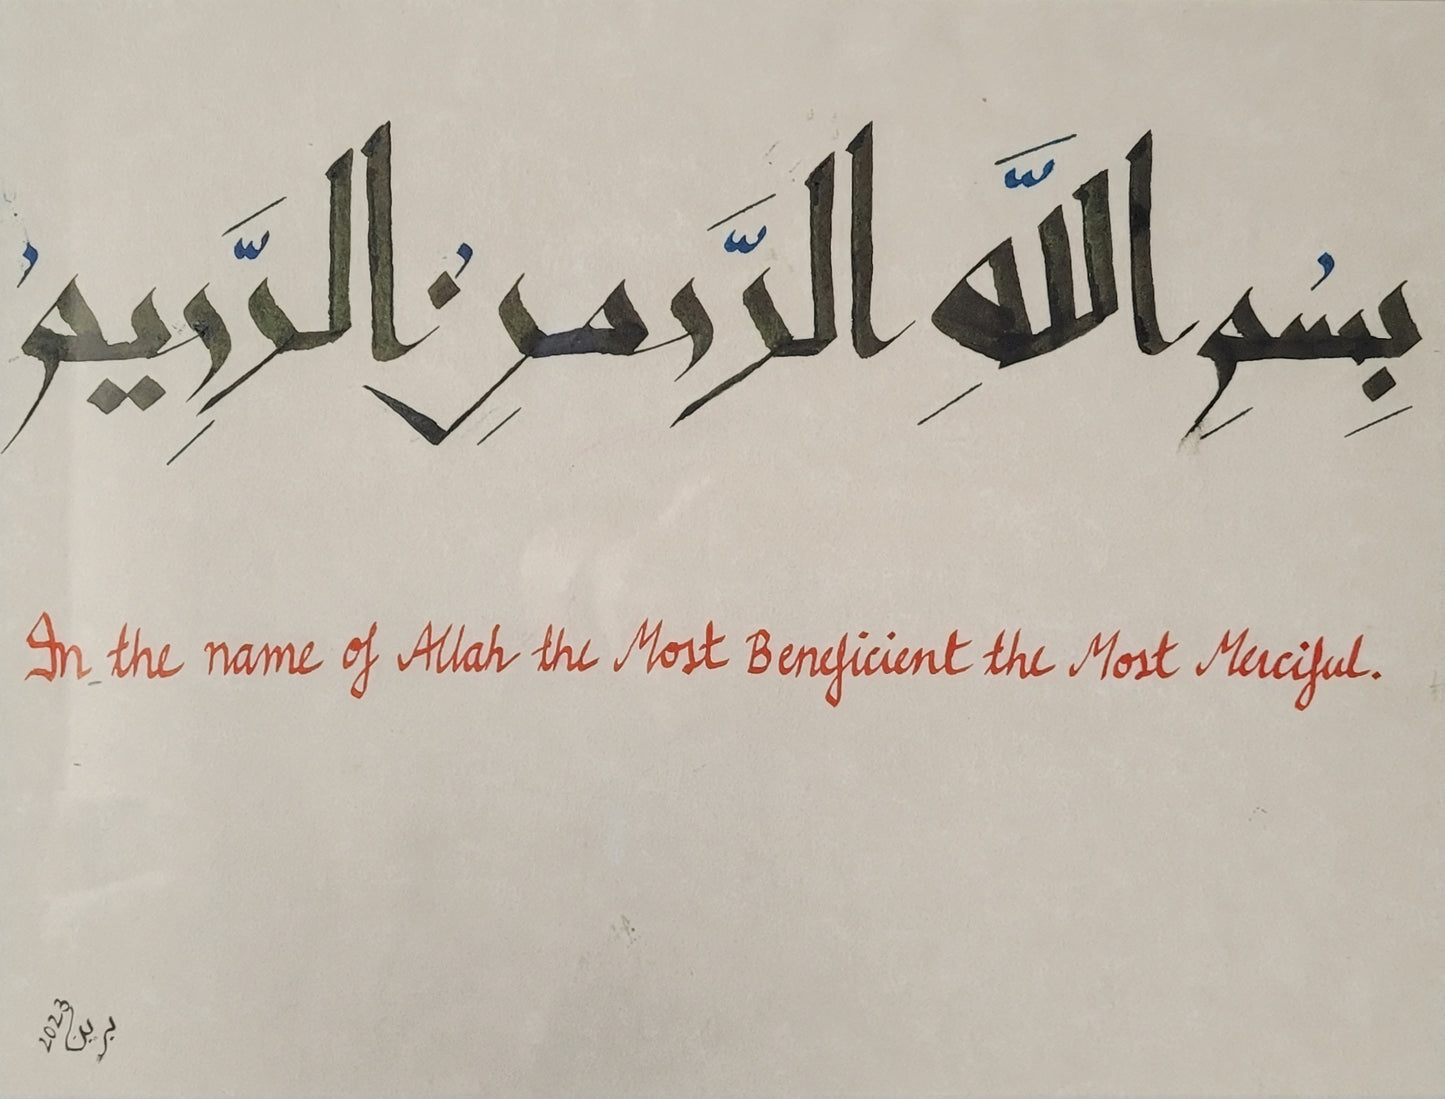 بِسْمِ اللَّهِ الرَّحمنِ الرَّحِيمْ
In the name of Allah the Most Beneficient the Most Merciful.
2023